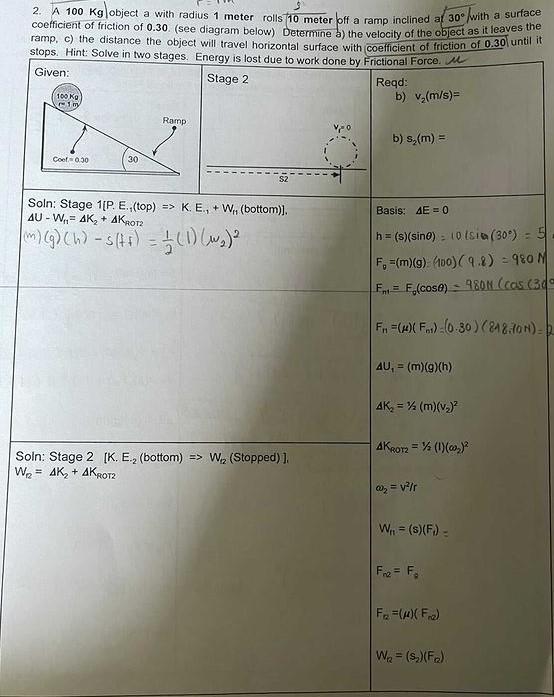 2. A 100 Kg object a with radius 1 meter rolls 10 meter off a ramp inclined at 30° with a surface
coefficient of friction of 0.30. (see diagram below) Determine a) the velocity of the object as it leaves the
ramp, c) the distance the object will travel horizontal surface with coefficient of friction of 0.30 until it
stops. Hint: Solve in two stages. Energy is lost due to work done by Frictional Force. μ
Given:
100 Kg
r= 1 m
Ramp
Coef.= 0.30
30
Stage 2
V_f= 0
S2
Reqd:
b) v₂(m/s)=
b) s₂(m) =
Soln: Stage 1[P. E.₁(top) => K. E.₁ + W_f1 (bottom)],
ΔU - W_f1= ΔK₂ + ΔK_ROT2
(m)(g)(h) - s(ff) = 1/2 (I)(ω₂)²
Basis: ΔE = 0
h = (s)(sinθ) = 10 (sin(30°) = 5
F_g =(m)(g) = (100)(9.8) = 980 N
F_n1 = F_g(cosθ) = 980N (cos(30°
F_f1 =(μ)( F_n1) = (0.30)(848.70N) = 2
ΔU₁ = (m)(g)(h)
ΔK₂ = ½ (m)(v₂)²
ΔK_ROT2 = ½ (I)(ω₂)²
ω₂ = v²/r
W_f1 = (s)(F_f) =
F_n2 = F_g
F_f2 =(μ)( F_n2)
W_f2 = (s₂)(F_f2)
Soln: Stage 2 [K. E.₂ (bottom) => W_f2 (Stopped) ],
W_f2 = ΔK₂ + ΔK_ROT2